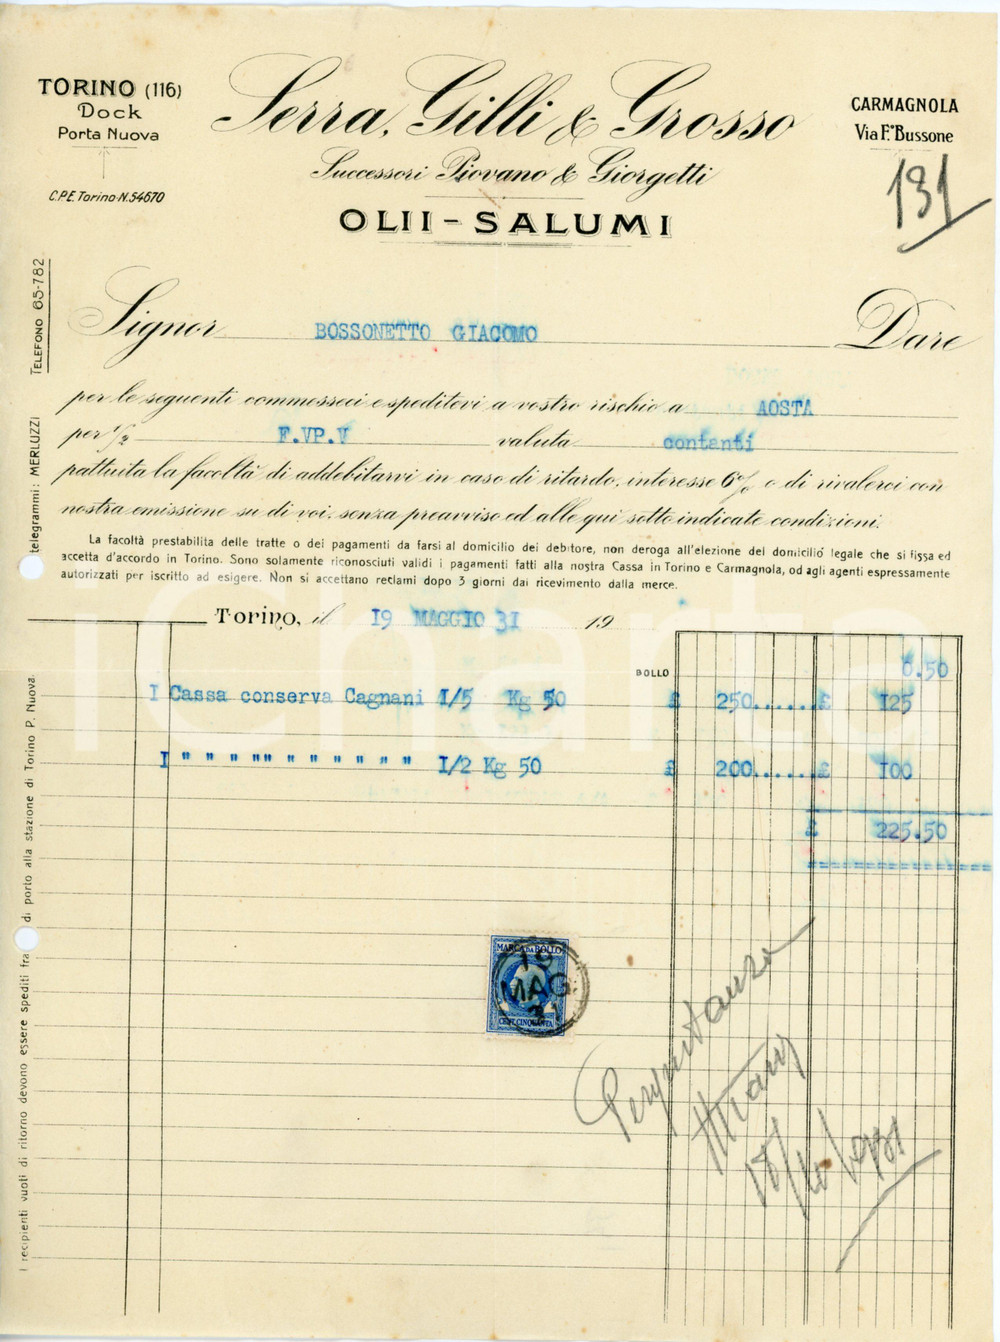 TORINO (116)
Dock
Porta Nuova
C.P.E. Torino N. 54670
Serra, Gilli & Grosso
Successori Piovano & Giorgetti
OLII - SALUMI
CARMAGNOLA
Via F.lli Bussone
131
TELEFONO 65-782
telegrammi: MERLUZZI
Signor BOSSONETTO GIACOMO Dare
per le seguenti commesseci e speditevi a vostro rischio a AOSTA
per 1/2 F.VP.V valuta contanti
pattuita la facoltà di addebitarvi in caso di ritardo, interesse 6% o di rivalerci con
nostra emissione su di voi, senza preavviso ed alle qui sotto indicate condizioni.
La facoltà prestabilita delle tratte o dei pagamenti da farsi al domicilio dei debitore, non deroga all'elezione del domicilio legale che si fissa ed
accetta d'accordo in Torino. Sono solamente riconosciuti validi i pagamenti fatti alla nostra Cassa in Torino e Carmagnola, od agli agenti espressamente
autorizzati per iscritto ad esigere. Non si accettano reclami dopo 3 giorni dal ricevimento dalla merce.
Torino, il 19 MAGGIO 31 19
BOLLO 0.50
I Cassa conserva Cagnani I/5 Kg 50 £ 250......£ I25
I " " " """ " " " " " " " I/2 Kg 50 £ 200......£ I00
£ 225.50
I recipienti vuoti di ritorno devono essere spediti fra di porto alla stazione di Torino P. Nuova.
MARCA DA BOLLO
19
MAG.
CENT. CINQUANTA
Per quietanza
iCharta